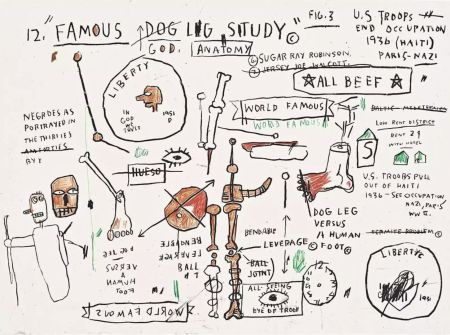 12. "FAMOUS DOG LEG STUDY"©
GOD. ANATOMY
FIG. 3
U.S. TROOPS
END OCCUPATION
1936 (HAITI)
PARIS-NAZI
SUGAR RAY ROBINSON.
JERSEY JOE WALCOTT.
☆ALL BEEF☆
LIBERTY
IN
GOD
WE
TRUST
1951
NEGROES AS
PORTRAYED IN
THE THIRTIES
WORLD FAMOUS
WORLD FAMOUS
LOW RENT DISTRICT
RENT 29
WITH HOTEL
S
U.S. TROOPS PULL
OUT OF HAITI
1936 - SEE OCCUPATION
NAZI, PARIS
WW II.
HUESO
DOG LEG
VERSUS
A HUMAN
©FOOT©
BENDABLE
LEVERAGE
BALL
BENDABLE
LEVERAGE
BALL
JOINT
DOG LEG
VERSUS
A HUMAN
FOOT
ALL-SEEING
EYE OF TROOP
WORLD FAMOUS
LIBERTY
1951